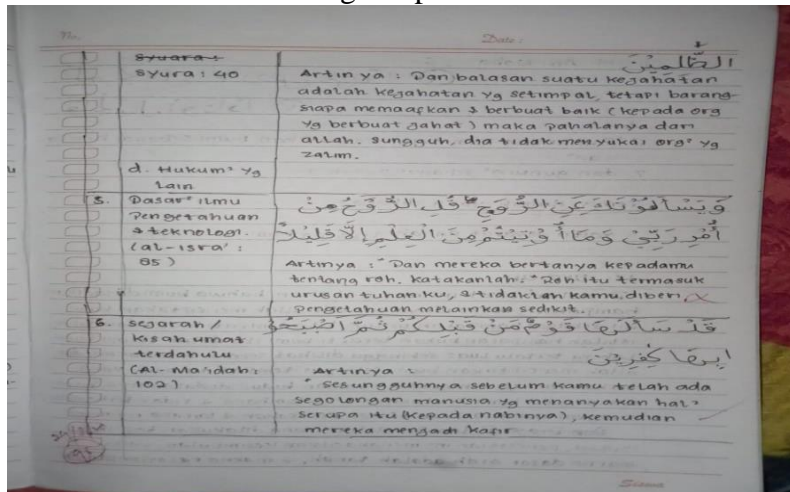 No.
Date :
الظّٰلِمِيْنَ
Syuara :
Syura : 40
Artinya : Dan balasan suatu kejahatan
adalah kejahatan yg setimpal, tetapi barang-
siapa memaafkan & berbuat baik (kepada org
yg berbuat jahat) maka pahalanya dari
allah. Sungguh, dia tidak menyukai org² yg
zalim.
d. Hukum² yg
Lain
5.
Dasar² ilmu
Pengetahuan
& teknologi.
(al-isra' :
85)
وَيَسْأَلُوْنَكَ عَنِ الرُّوْحِ قُلِ الرُّوْحُ مِنْ
أَمْرِ رَبِّيْ وَمَا أُوْتِيْتُمْ مِنَ الْعِلْمِ إِلَّا قَلِيْلًا
Artinya : "Dan mereka bertanya kepadamu
tentang roh, katakanlah. "Roh itu termasuk
urusan tuhan ku, & tidaklah kamu diberi
pengetahuan melainkan sedikit.
6.
Sejarah /
Kisah umat
terdahulu
(Al-Ma'idah :
102)
قَدْ سَأَلَهَا قَوْمٌ مِّنْ قَبْلِكُمْ ثُمَّ اَصْبَحُوْ
بِهَا كٰفِرِيْنَ
Artinya :
"Sesungguhnya sebelum kamu telah ada
segolongan manusia yg menanyakan hal²
serupa itu (kepada nabinya), kemudian
mereka menjadi kafir
95